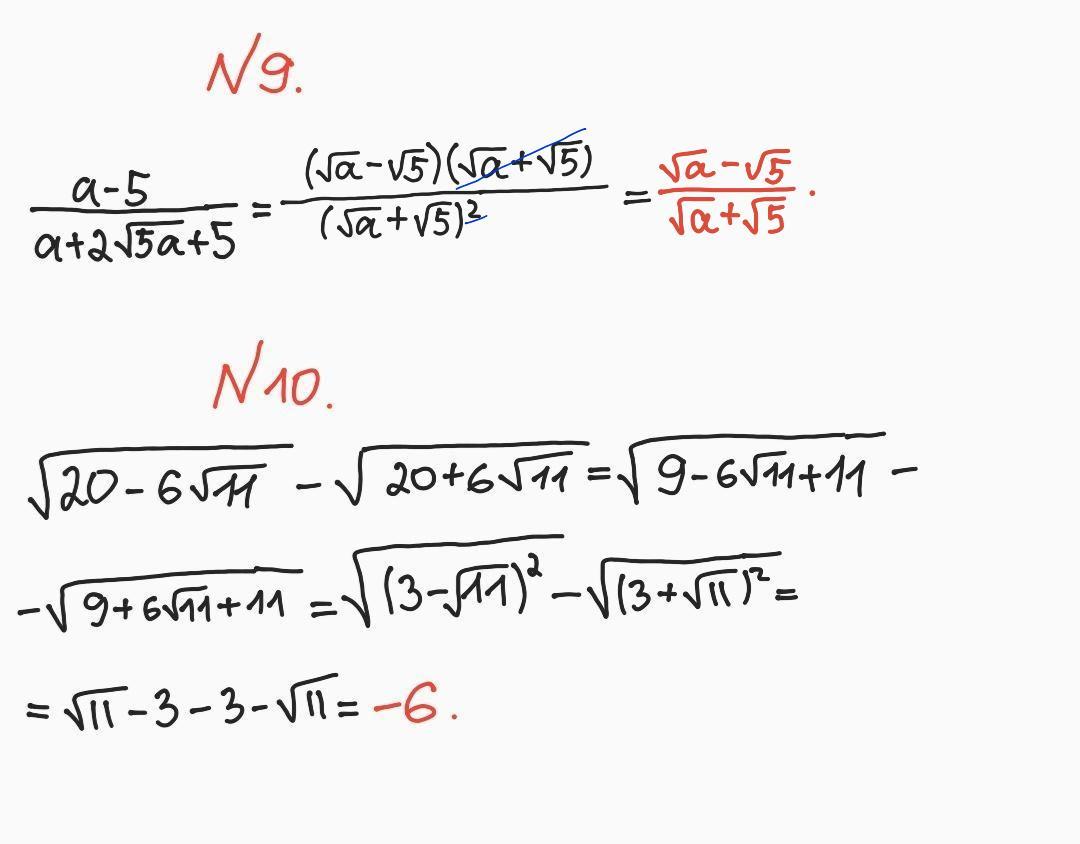 N9.
(a-5)/(a+2√(5a)+5) = ((√a-√5)(√a+√5))/((√a+√5)²) = (√a-√5)/(√a+√5).
N10.
√(20-6√11) - √(20+6√11) = √(9-6√11+11) -
-√(9+6√11+11) = √((3-√11)²) - √((3+√11)²) =
= √11-3-3-√11 = -6.